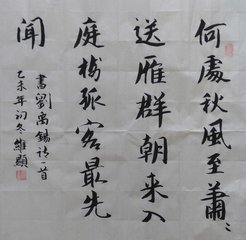 何處秋風至蕭〻
送雁群朝來入
庭樹孤客最先
聞
書劉禹錫詩一首
乙未年初冬維顯